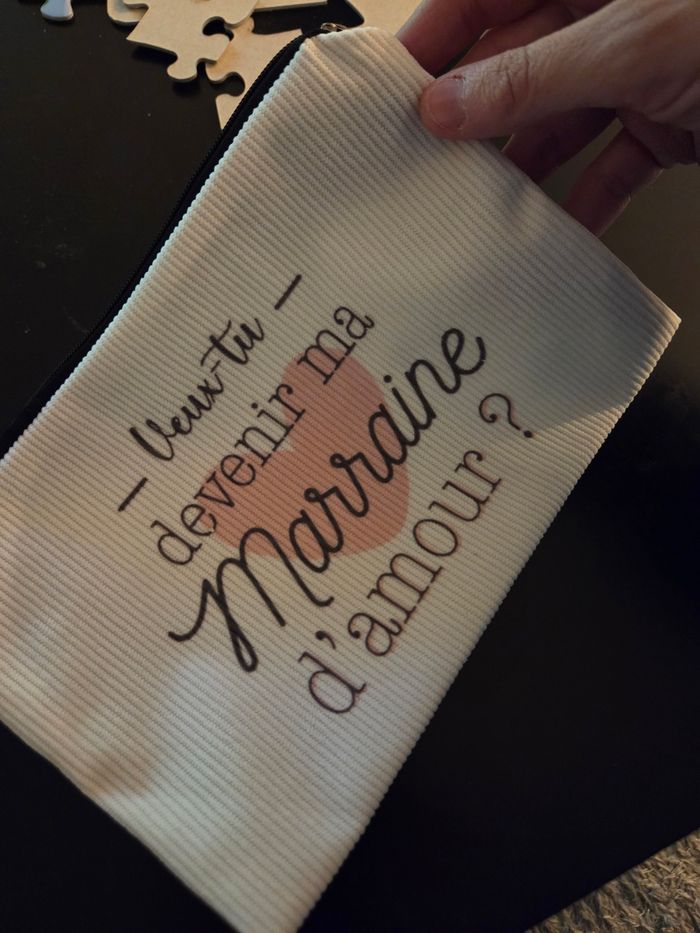 — Veux-tu —
devenir ma
Marraine
d'amour ?